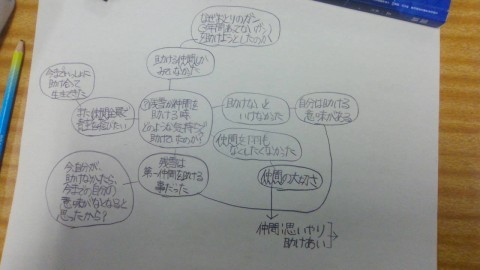 なぜおとりのガン
助けようとしたのか
助ける仲間しか
みえなかった
今までいっしょに
助け合って
生きてきた
また仲間全員で
①残雪が仲間を
助ける時
どのような気持ちで
助けるのか?
助けないと
いけなかった
自分は助ける
意味がある
仲間を1羽も
なくしたくなかった
残雪は
第一仲間を助ける
事だった
今自分が、
助けなかったら、
今までの自分の
意味がなくなると
思ったから?
仲間の大切さ
仲間思いやり
助けあい